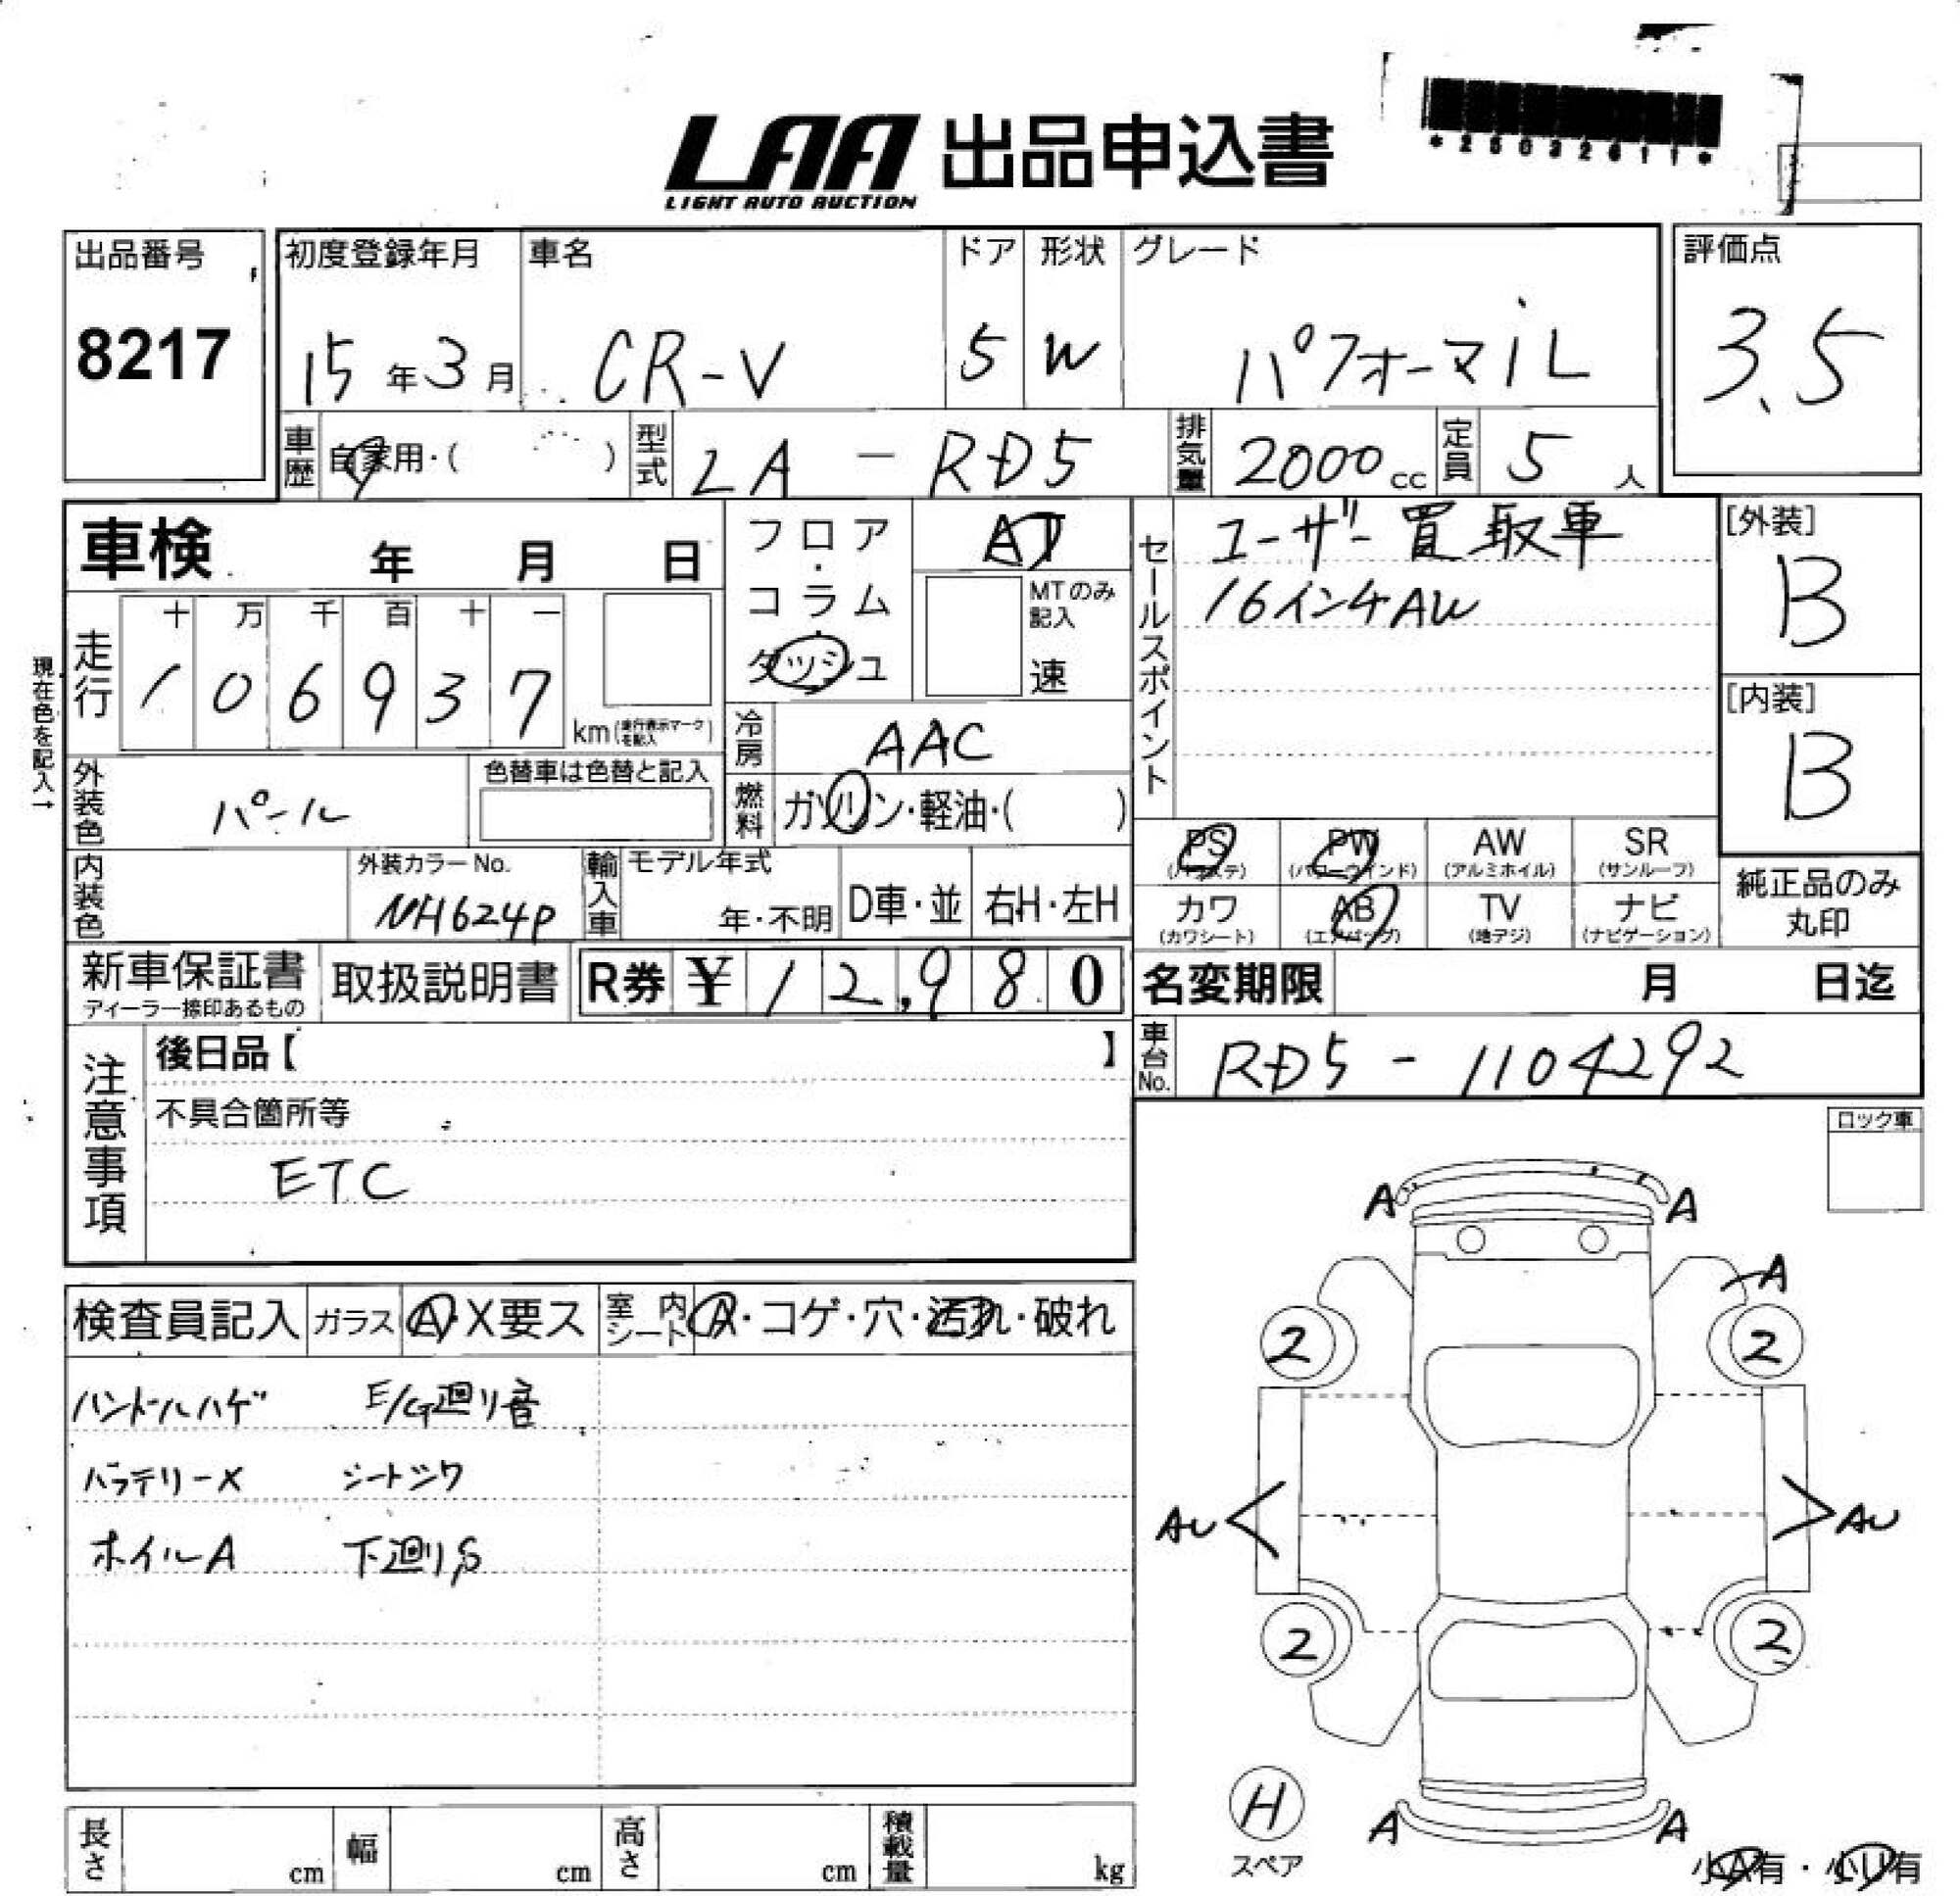 *25032611*
LAA 出品申込書
LIGHT AUTO AUCTION
出品番号
8217
初度登録年月
15年3月
車名
CR-V
ドア
5
形状
W
グレード
パフォーマiL
評価点
3.5
車歴
自家用・( )
型式
LA-RD5
排気量
2000cc
定員
5人
車検 年 月 日
フロア・コラム・ダッシュ
AT
MTのみ記入
速
セールスポイント
ユーザー買取車
16インチAW
[外装]
B
[内装]
B
現在色を記入→
走行
十 万 千 百 十 一
1 0 6 9 3 7
km(走行表示マークを記入)
冷房
AAC
外装色
パール
色替車は色替と記入
燃料
ガソリン・軽油・( )
PS
(パワステ)
PW
(パワーウインド)
AW
(アルミホイル)
SR
(サンルーフ)
内装色
外装カラーNo.
NH624P
輸入車
モデル年式
年・不明
D車・並
右H・左H
カワ
(カワシート)
AB
(エアバッグ)
TV
(地デジ)
ナビ
(ナビゲーション)
純正品のみ
丸印
新車保証書
ディーラー捺印あるもの
取扱説明書
R券 ¥12,980
名変期限 月 日迄
注意事項
後日品【 】
車台No.
RD5-1104292
不具合箇所等
ETC
ロック車
検査員記入
ガラス
A・X要ス
室内シート
A・コゲ・穴・汚れ・破れ
ハンドルハゲ E/G廻り音
バッテリーX シートシワ
ホイルA 下廻りS
A A
A
2 2
AU AU
2 2
H
スペア
A A
小A有・小U有
長さ cm
幅 cm
高さ cm
積載量 kg